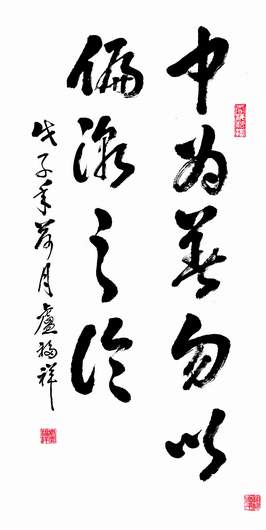 中为善勿以
偏激之论
戊子年荷月盧福祥